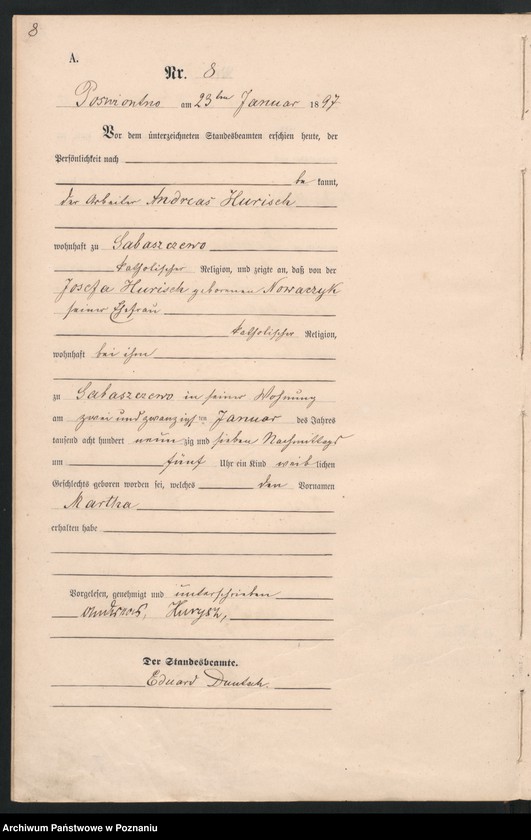 8
A.
Nr. 8
Poswiontno am 23ten Januar 1897
Vor dem unterzeichneten Standesbeamten erschien heute, der
Persönlichkeit nach
be kannt,
der Arbeiter Andreas Hurisch
wohnhaft zu Gabaszczewo
katholischer Religion, und zeigte an, daß von der
Josefa Hurisch geborenen Nowaczyk
seiner Ehefrau
katholischer Religion,
wohnhaft bei ihm
zu Gabaszczewo in seiner Wohnung
am zwei und zwanzigsten Januar des Jahres
tausend acht hundert neun zig und sieben Nachmittags
um fünf Uhr ein Kind weib lichen
Geschlechts geboren worden sei, welches den Vornamen
Martha
erhalten habe
Vorgelesen, genehmigt und unterschrieben
Andreas, Hurysz,
Der Standesbeamte.
Eduard
Archiwum Państwowe w Poznaniu